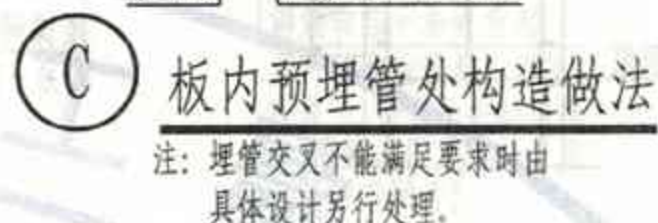 C 板内预埋管处构造做法
注: 埋管交叉不能满足要求时由
具体设计另行处理.